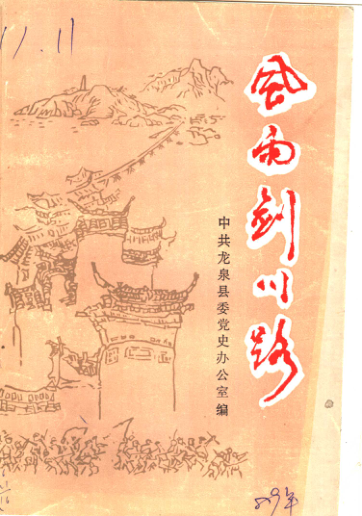 11.11
风雨剑川路
中共龙泉县委党史办公室编
89年